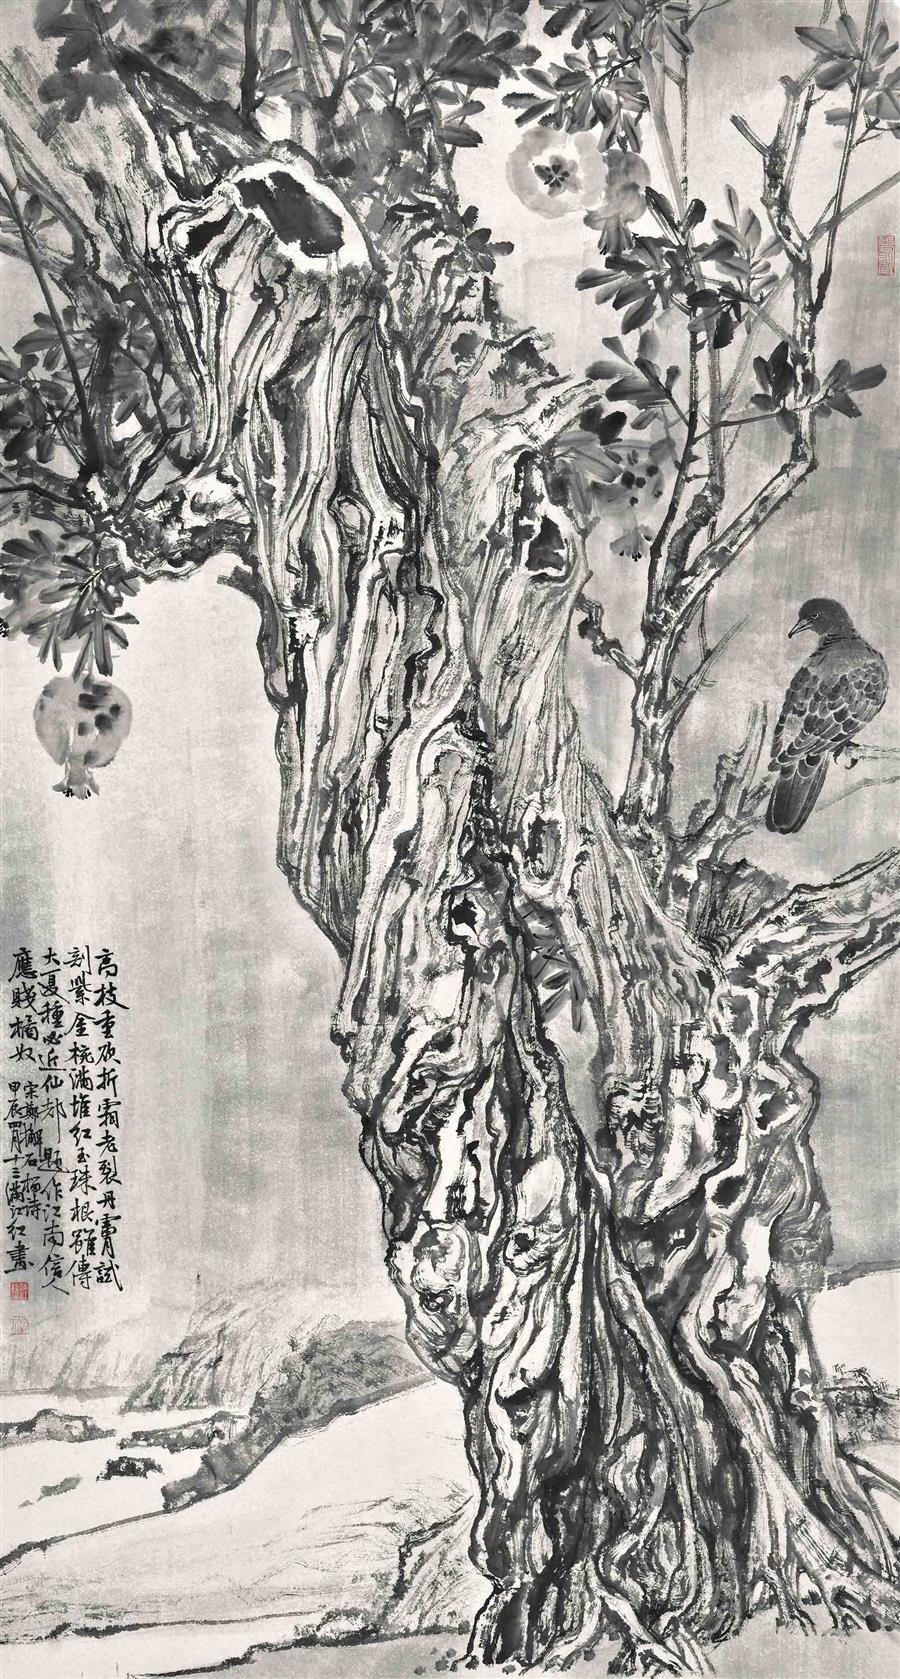 高枝重欲折霜老裂丹膚試
剖紫金椀滿堆紅玉珠根雖傳
大夏種必近仙都題作江南信人
應賤橘奴
宋鄭獬石榴詩
甲辰四月十三滿江紅畫